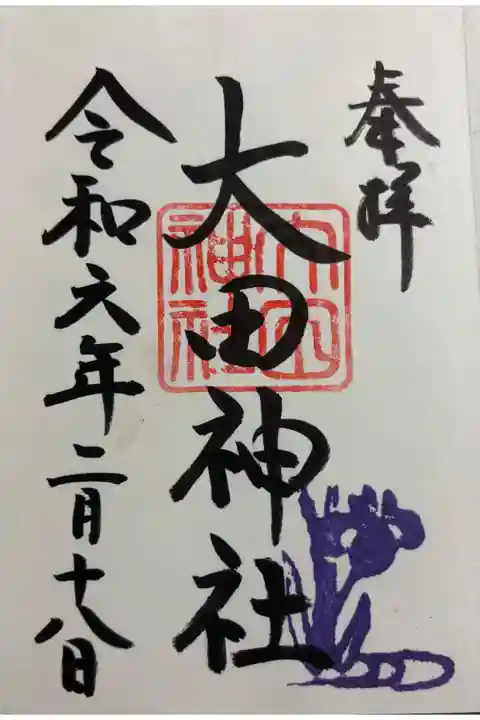 奉拝
大田神社
大田神社
令和六年二月十八日